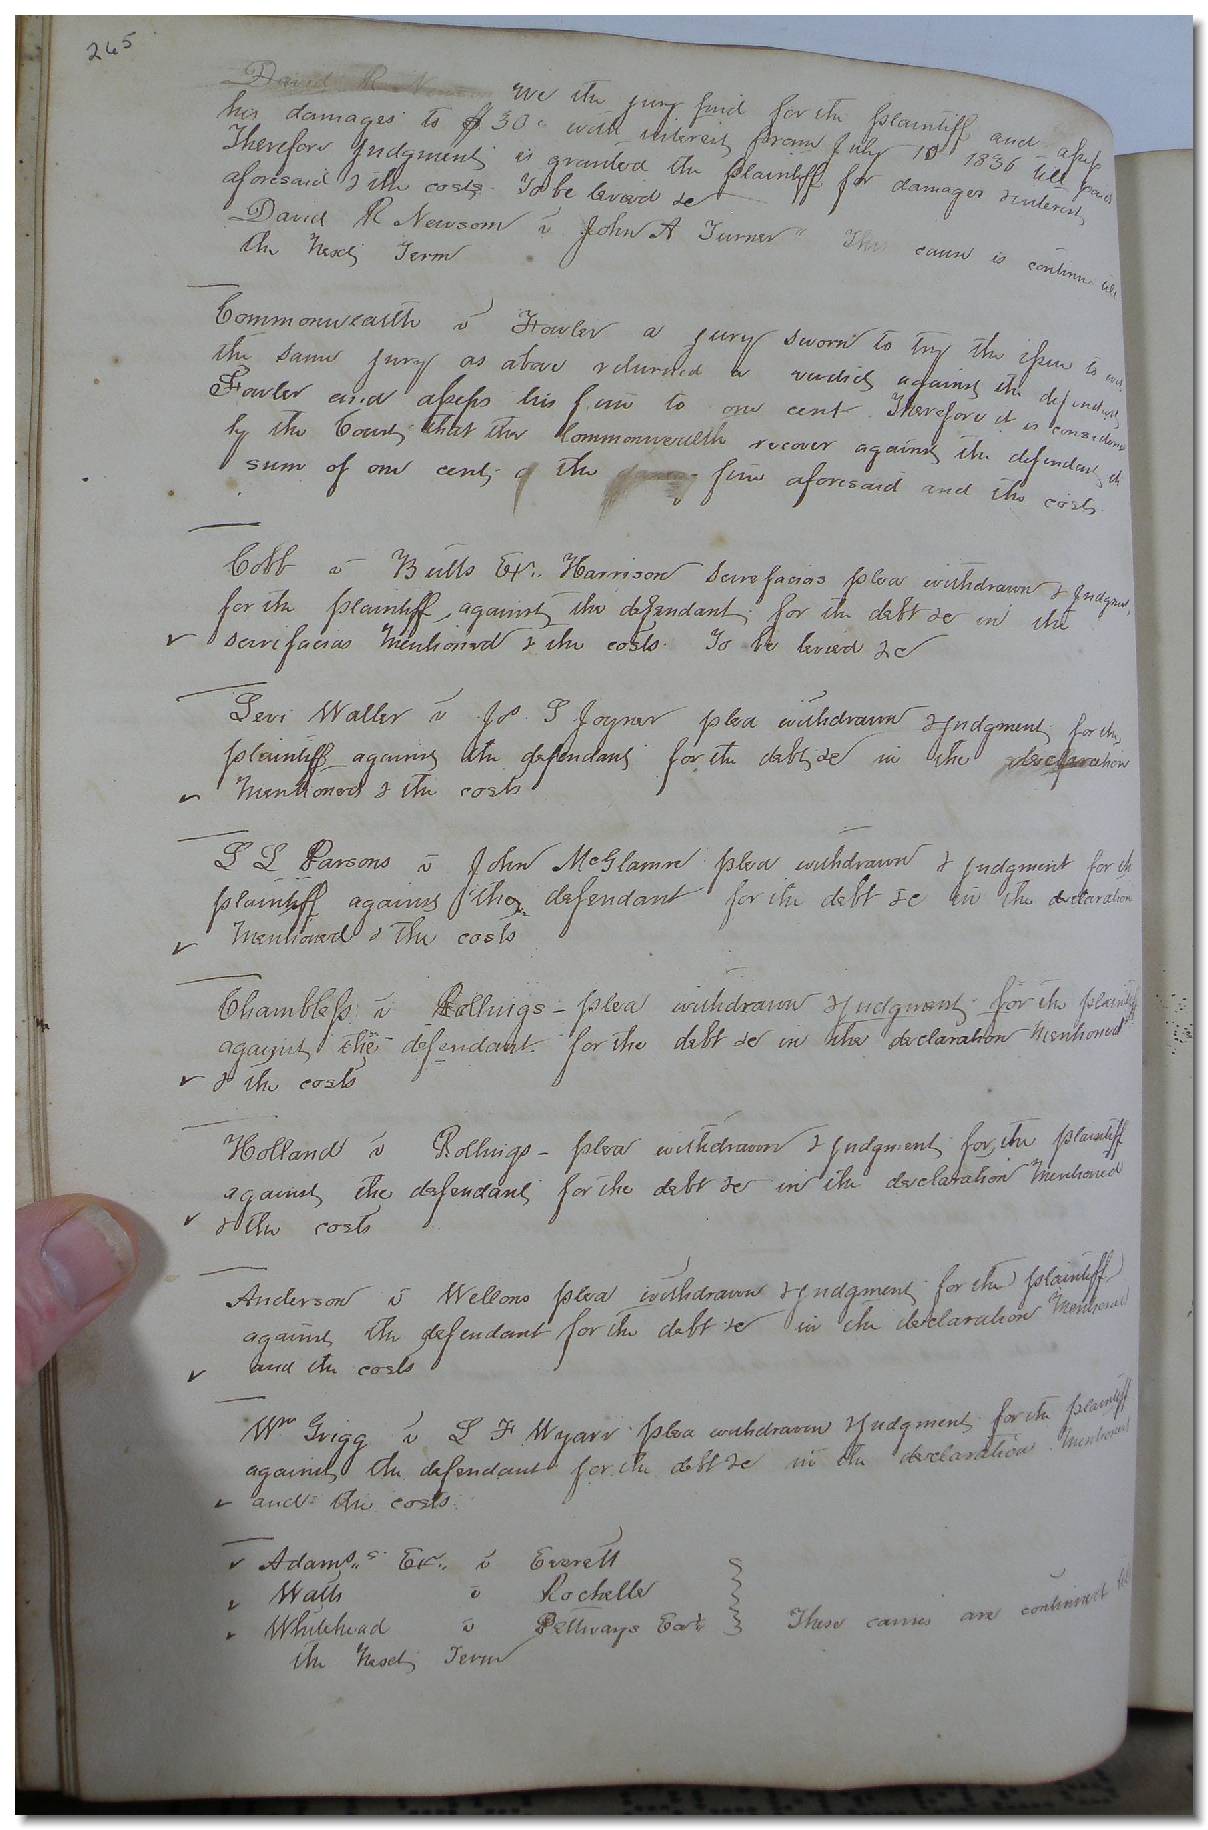 245
David R We the jury find for the plaintiff and assess
his damages to $30 " with interest from July 1836 till paid
Therefore judgment is granted the plaintiff for damages & interest
aforesaid & the costs. To be levied &c
David R Newsom v John A Turner " This cause is continued till
the Next Term
Commonwealth v Fowler a jury sworn to try the issue to wit
the same jury as above returned a verdict against the defendant
Fowler and assess his fine to one cent. Therefore it is considered
by the Court that the Commonwealth recover against the defendant the
sum of one cent the fine aforesaid and the costs
Cobb v Butts Exr. Harrison Scirefacias plea withdrawn & judgmt.
for the plaintiff against the defendant for the debt &c in the
scirefacias Mentioned & the costs. To be levied &c
Levi Waller v Jos. S Joyner plea withdrawn & judgment for the
plaintiff against the defendant for the debt &c in the declaration
Mentioned & the costs
S L Parsons v John McGlamre plea withdrawn & judgment for the
plaintiff against the defendant for the debt &c in the declaration
Mentioned & the costs
Chambless v Rollings - plea withdrawn & judgment for the plaintiff
against the defendant for the debt &c in the declaration Mentioned
& the costs
Holland v Rollings - plea withdrawn & judgment for the plaintiff
against the defendant for the debt &c in the declaration Mentioned
& the costs
Anderson v Wellons plea withdrawn & judgment for the plaintiff
against the defendant for the debt &c in the declaration Mentioned
and the costs
Wm Grigg v L F Wyarr plea withdrawn & judgment for the plaintiff
against the defendant for the debt &c in the declaration Mentioned
and the costs
Adams's Exr. v Everett
Watts v Rochelle
Whitehead v Pettways Exr These causes are continued till
the Next Term